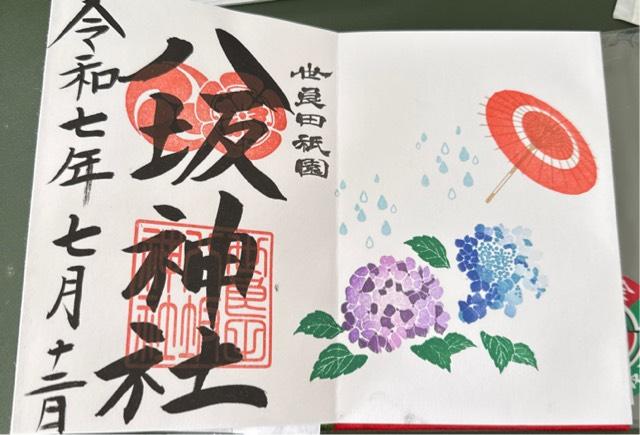 世良田祇園
八坂神社
令和七年七月十二日